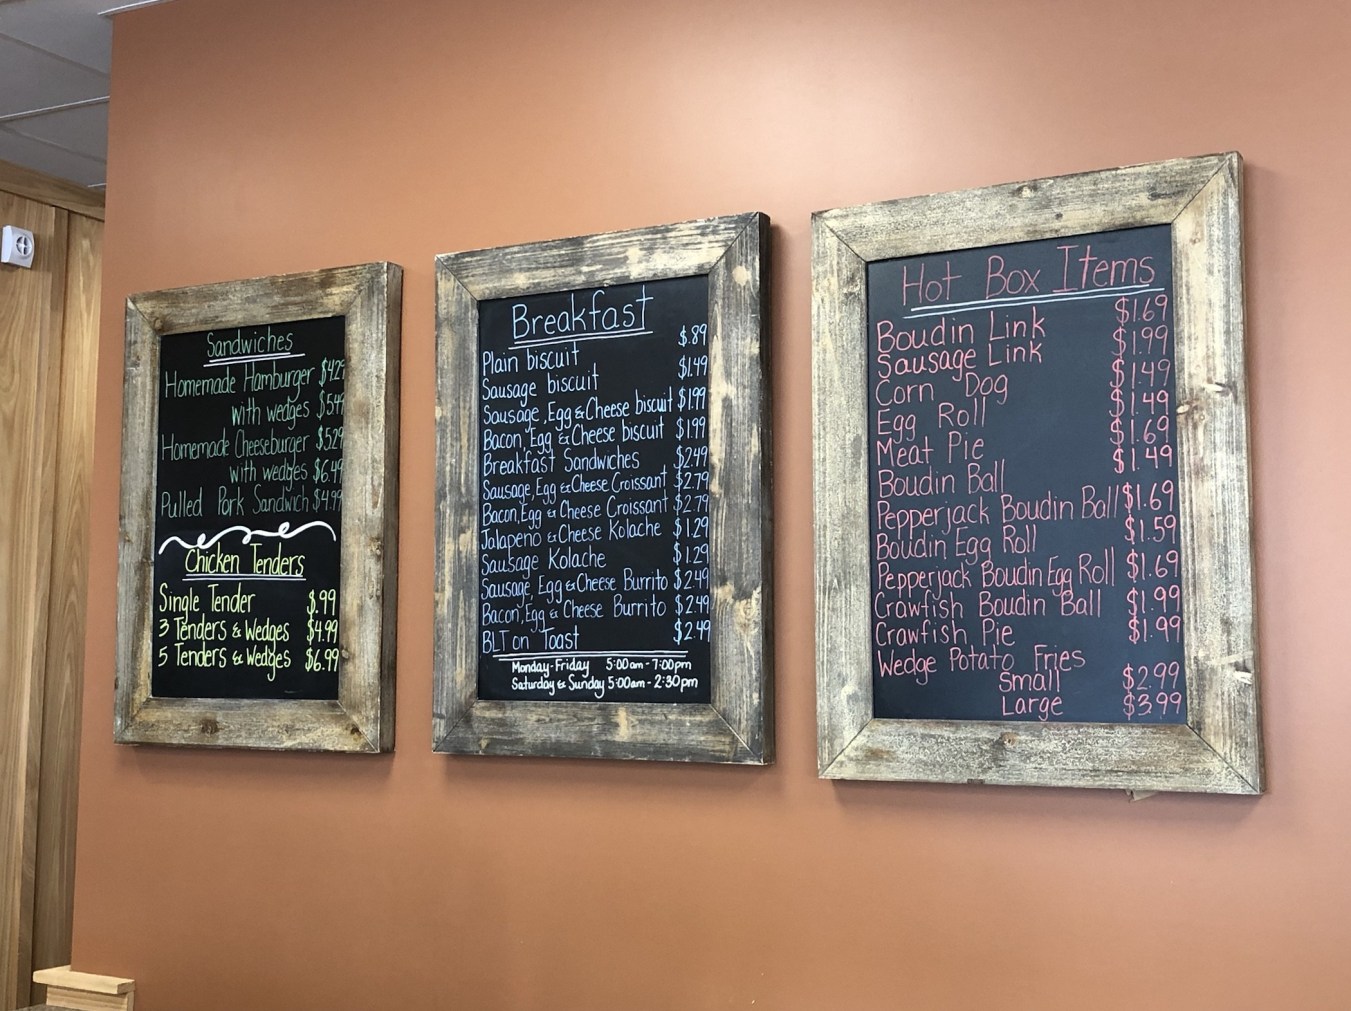 Sandwiches
Homemade Hamburger $4.29
with wedges $5.49
Homemade Cheeseburger $5.29
with wedges $6.49
Pulled Pork Sandwich $4.99
Chicken Tenders
Single Tender $.99
3 Tenders & Wedges $4.99
5 Tenders & Wedges $6.99
Breakfast
Plain biscuit $.89
Sausage biscuit $1.49
Sausage, Egg & Cheese biscuit $1.99
Bacon, Egg & Cheese biscuit $1.99
Breakfast Sandwiches $2.49
Sausage, Egg & Cheese Croissant $2.79
Bacon, Egg & Cheese Croissant $2.79
Jalapeno & Cheese Kolache $1.29
Sausage Kolache $1.29
Sausage, Egg & Cheese Burrito $2.49
Bacon, Egg & Cheese Burrito $2.49
BLT on Toast $2.49
Monday-Friday 5:00am - 7:00pm
Saturday & Sunday 5:00am - 2:30pm
Hot Box Items
Boudin Link $1.69
Sausage Link $1.99
Corn Dog $1.49
Egg Roll $1.49
Meat Pie $1.69
Boudin Ball $1.49
Pepperjack Boudin Ball $1.69
Boudin Egg Roll $1.59
Pepperjack Boudin Egg Roll $1.69
Crawfish Boudin Ball $1.99
Crawfish Pie $1.99
Wedge Potato Fries
Small $2.99
Large $3.99